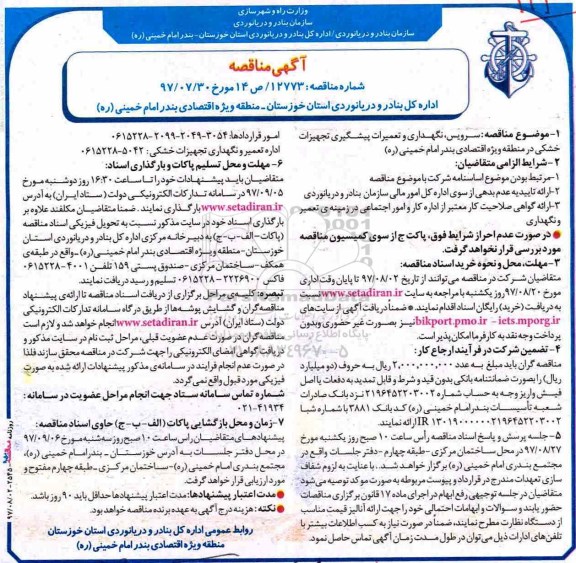 وزارت راه و شهرسازی
سازمان بنادر و دریانوردی
سازمان بنادر و دریانوردی / اداره کل بنادر و دریانوردی استان خوزستان - بندر امام خمینی (ره)
آگهی مناقصه
شماره مناقصه: ۱۲۷۷۳/ص ۱۴ مورخ ۹۷/۰۷/۳۰
اداره کل بنادر و دریانوردی استان خوزستان - منطقه ویژه اقتصادی بندر امام خمینی (ره)
۱- موضوع مناقصه: سرویس، نگهداری و تعمیرات پیشگیری تجهیزات
خشکی در منطقه ویژه اقتصادی بندر امام خمینی (ره)
۲- شرایط الزامی متقاضیان:
۱- مرتبط بودن موضوع اساسنامه شرکت با موضوع مناقصه
۲- ارائه تاییدیه عدم بدهی از سوی اداره کل امور مالی سازمان بنادر و دریانوردی
۳- ارائه گواهی صلاحیت کار معتبر از اداره کار و امور اجتماعی در زمینه‌ی تعمیر
و نگهداری
در صورت عدم احراز شرایط فوق، پاکت ج از سوی کمیسیون مناقصه
مورد بررسی قرار نخواهد گرفت.
۳- مهلت، محل و نحوه خرید اسناد مناقصه:
متقاضیان شرکت در مناقصه می‌توانند از تاریخ ۹۷/۰۸/۰۲ تا پایان وقت اداری
مورخ ۹۷/۰۸/۲۰ روز یکشنبه با مراجعه به سایت www.setadiran.ir نسبت
به دریافت (خرید) رایگان اسناد اقدام نمایند. ضمنا دریافت آگهی از سایت‌های
bikport.pmo.ir - iets.mporg.ir نیز بصورت غیر حضوری و بدون
پرداخت وجه نقد به کارفرما امکان پذیر است.
۴- تضمین شرکت در فرآیند ارجاع کار:
مناقصه گران باید مبلغ به عدد ۲,۰۰۰,۰۰۰,۰۰۰ ریال به حروف (دو میلیارد
ریال) را بصورت ضمانتنامه بانکی بدون قید و شرط و قابل تمدید به دفعات یا اصل
فیش واریز وجه به حساب شماره ۲۱۹۶۴۵۲۲۰۳۰۰۲ نزد بانک صادرات
شعبه تأسیسات بندر امام خمینی (ره) کد بانک ۳۸۸۱ با شماره شبا
ارائه نمایند.
۵- جلسه پرسش و پاسخ اسناد مناقصه رأس ساعت ۱۰ صبح روز یکشنبه مورخ
۹۷/۰۸/۲۷ در محل ساختمان مرکزی - طبقه چهارم - دفتر جلسات واقع در
مجتمع بندری امام خمینی (ره) برگزار خواهد شد. با عنایت به لزوم شفاف
سازی تعهدات مندرج در قرارداد و پیوست مربوطه به صورت موکد توصیه می‌شود
متقاضیان در جلسه توجیهی رفع ابهام در اجرای ماده ۱۷ قانون برگزاری مناقصات
حضور یابند و سوالات و ابهامات احتمالی خود را جهت ارائه آنالیز قیمت مناسب
از دستگاه نظارت مطرح نمایند، ضمناً در صورت نیاز به کسب اطلاعات بیشتر با
تلفن‌های ادارات ذیل می‌توان در طول مدت زمان آگهی تماس حاصل نمود.
امور قراردادها: ۳۰۵۴-۲۰۴۹-۲۰۹۹-۰۶۱۵۲۲۸
اداره تعمیر و نگهداری تجهیزات خشکی: ۵۰۴۲-۰۶۱۵۲۲۸
۶- مهلت و محل تسلیم پاکات و بارگذاری اسناد:
متقاضیان باید پیشنهادات خود را تا ساعت ۱۶:۳۰ روز دوشنبه مورخ
۹۷/۰۹/۰۵ در سامانه تدارکات الکترونیکی دولت (ستاد ایران) به آدرس
www.setadiran.ir بارگذاری نمایند. ضمنا متقاضیان مکلفند علاوه بر
بارگذاری اسناد خود در سایت مذکور نسبت به تحویل فیزیکی اسناد مناقصه
(پاکات - الف - ب - ج) به دبیرخانه مرکزی اداره کل بنادر و دریانوردی استان
خوزستان - منطقه ویژه اقتصادی بندر امام خمینی (ره) - واقع در طبقه‌ی
همکف - ساختمان مرکزی - صندوق پستی ۱۵۹ تلفن ۴۰۰۱-۰۶۱۵۲۲۸
فاکس ۲۲۲۶۹۰۰-۰۶۱۵۲۲۸ تسلیم و رسید دریافت نمایند.
تبصره: کلیه‌ی مراحل برگزاری از دریافت اسناد مناقصه تا ارائه‌ی پیشنهاد
مناقصه گران و گشایش پوشه‌ها از طریق درگاه سامانه تدارکات الکترونیکی
دولت (ستاد ایران) آدرس www.setadiran.ir انجام خواهد شد و لازم است
مناقصه گران در صورت عدم عضویت قبلی، مراحل ثبت نام در سایت مذکور و
دریافت گواهی امضای الکترونیکی را جهت شرکت در مناقصه محقق سازند فلذا
در صورت عدم انجام فرایند در سامانه‌ی مذکور پیشنهادات ارائه شده به صورت
فیزیکی مورد قبول واقع نمی‌گردد.
شماره تماس سامانه ستاد جهت انجام مراحل عضویت در سامانه:
۰۲۱-۴۱۹۳۴
۷- زمان و محل بازگشایی پاکات (الف - ب - ج) حاوی اسناد مناقصه:
پیشنهادهای متقاضیان راس ساعت ۱۰ صبح روز سه‌شنبه مورخ ۹۷/۰۹/۰۶
در محل دفتر جلسات به آدرس خوزستان - بندر امام خمینی (ره)،
مجتمع بندری امام خمینی (ره) - ساختمان مرکزی - طبقه چهارم مفتوح و
مورد ارزیابی قرار خواهد گرفت.
مدت اعتبار پیشنهادها: مدت اعتبار پیشنهادها حداقل باید ۹۰ روز باشد.
نکته: هزینه درج آگهی به عهده برنده مناقصه خواهد بود.
روابط عمومی اداره کل بنادر و دریانوردی استان خوزستان
منطقه ویژه اقتصادی بندر امام خمینی (ره)